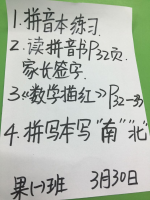 1.拼音本练习.
2.读拼音书P32页.
家长签字.
3《数学描红》P32-33
4.拼写本写"南""北"
果(一)班 3月30日